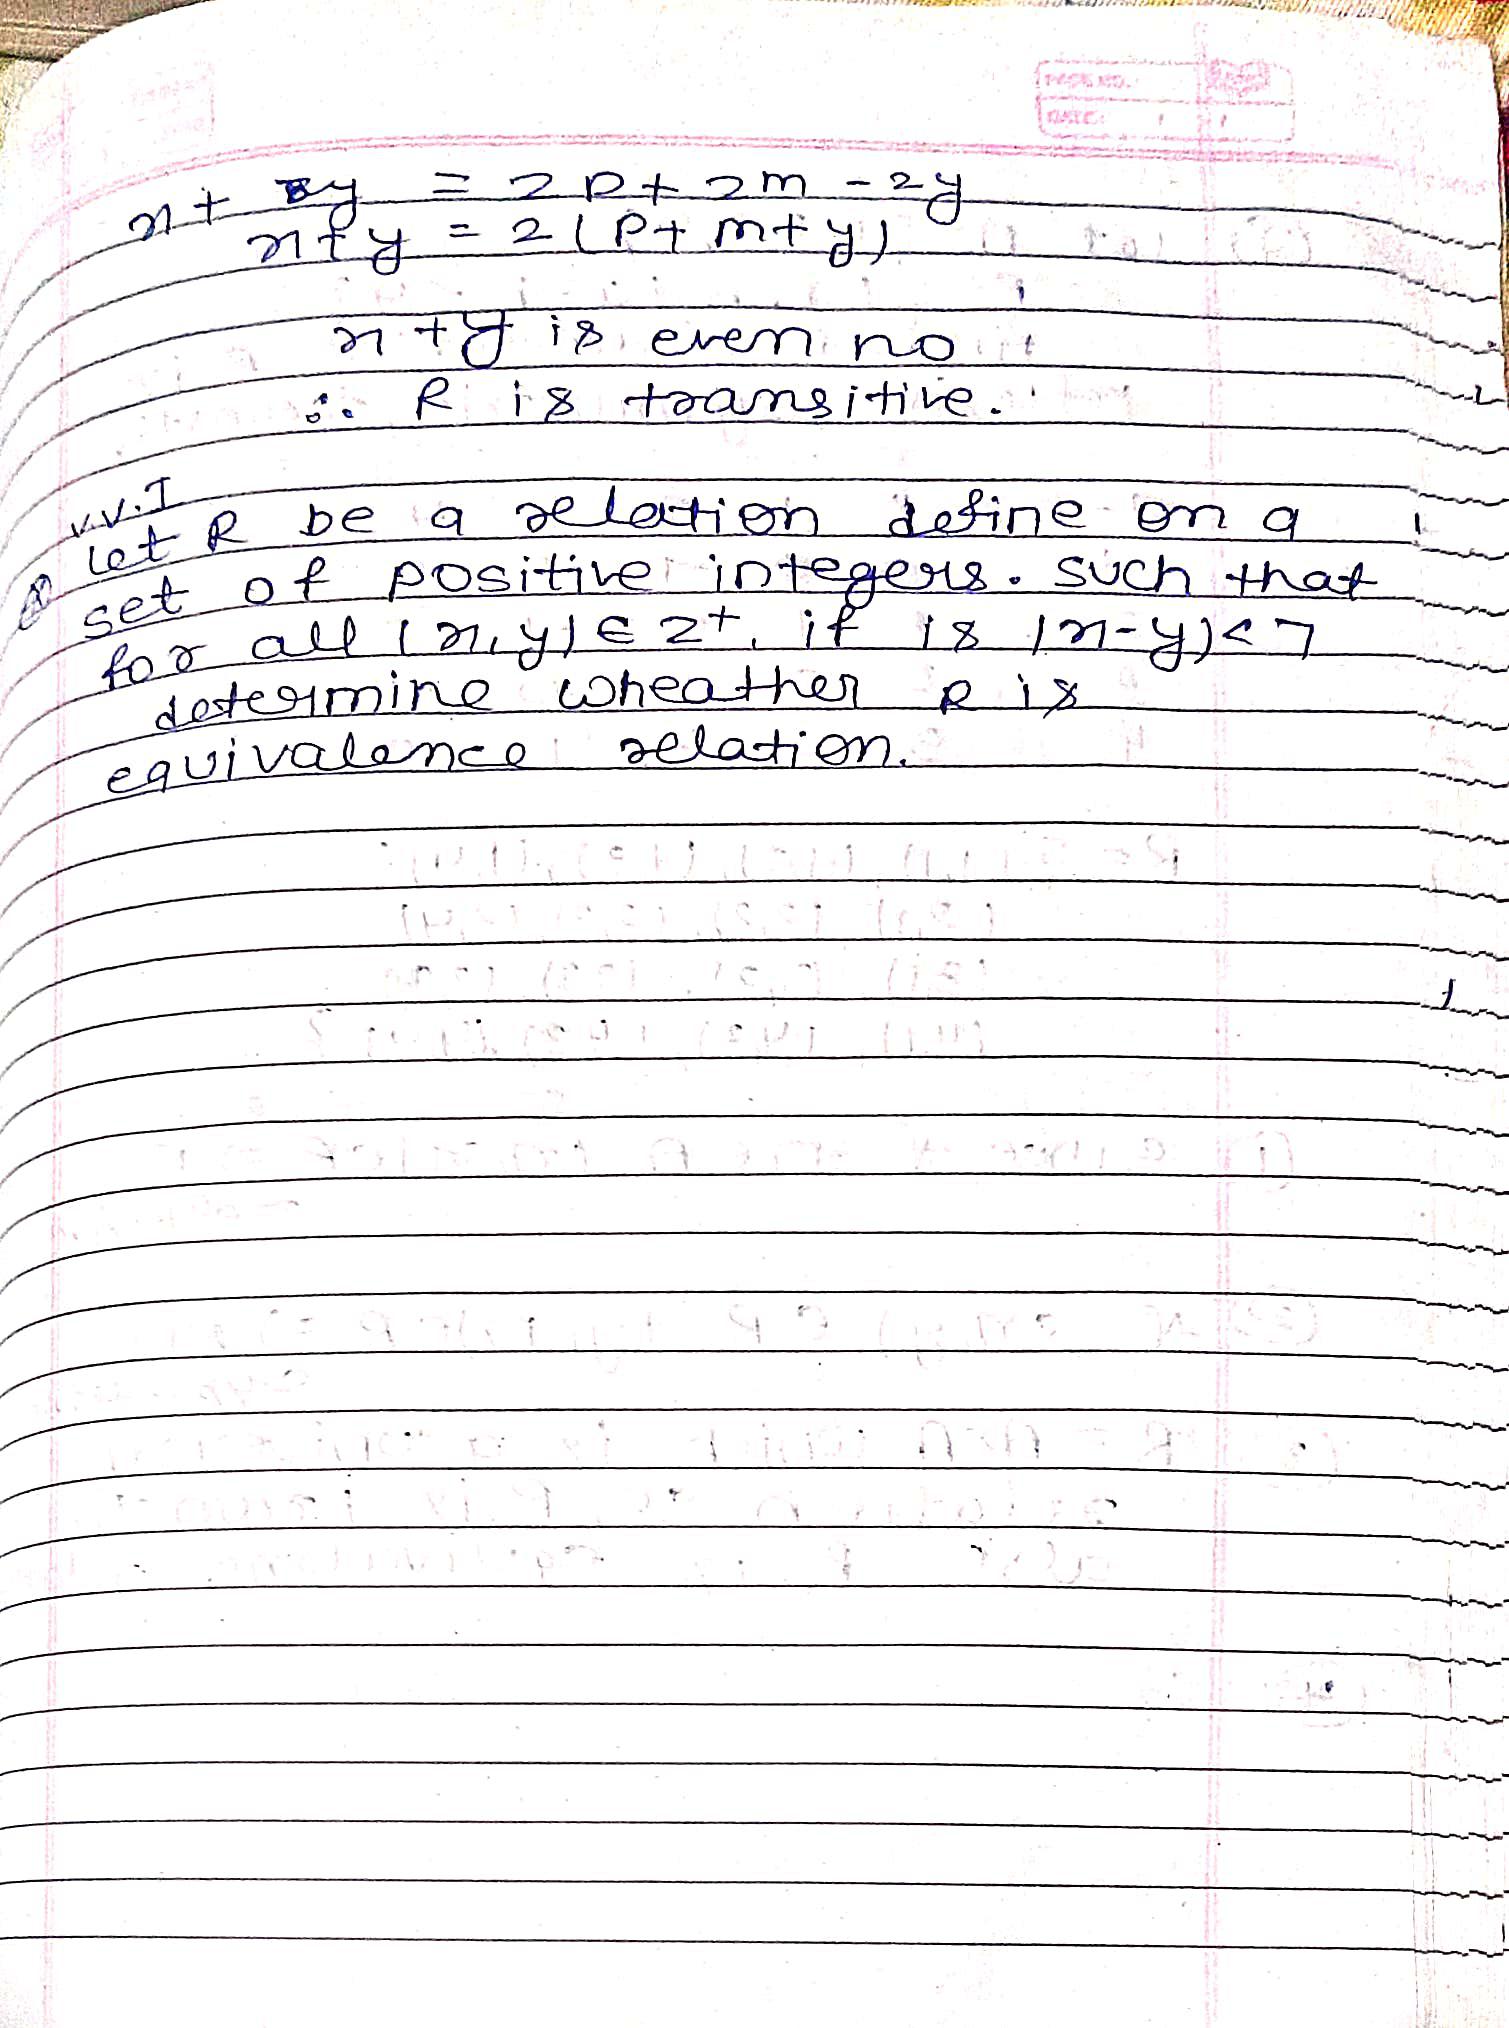 PAGE NO.
DATE:
x + zy = 2p + 2m - 2y
x + y = 2(p + m + y)
x + y is even no
∴ R is transitive.
v.v.I
Let R be a relation define on a
set of positive integers. such that
for all (x,y) ∈ z+, if is |x-y)<7
determine wheather R is
equivalence relation.